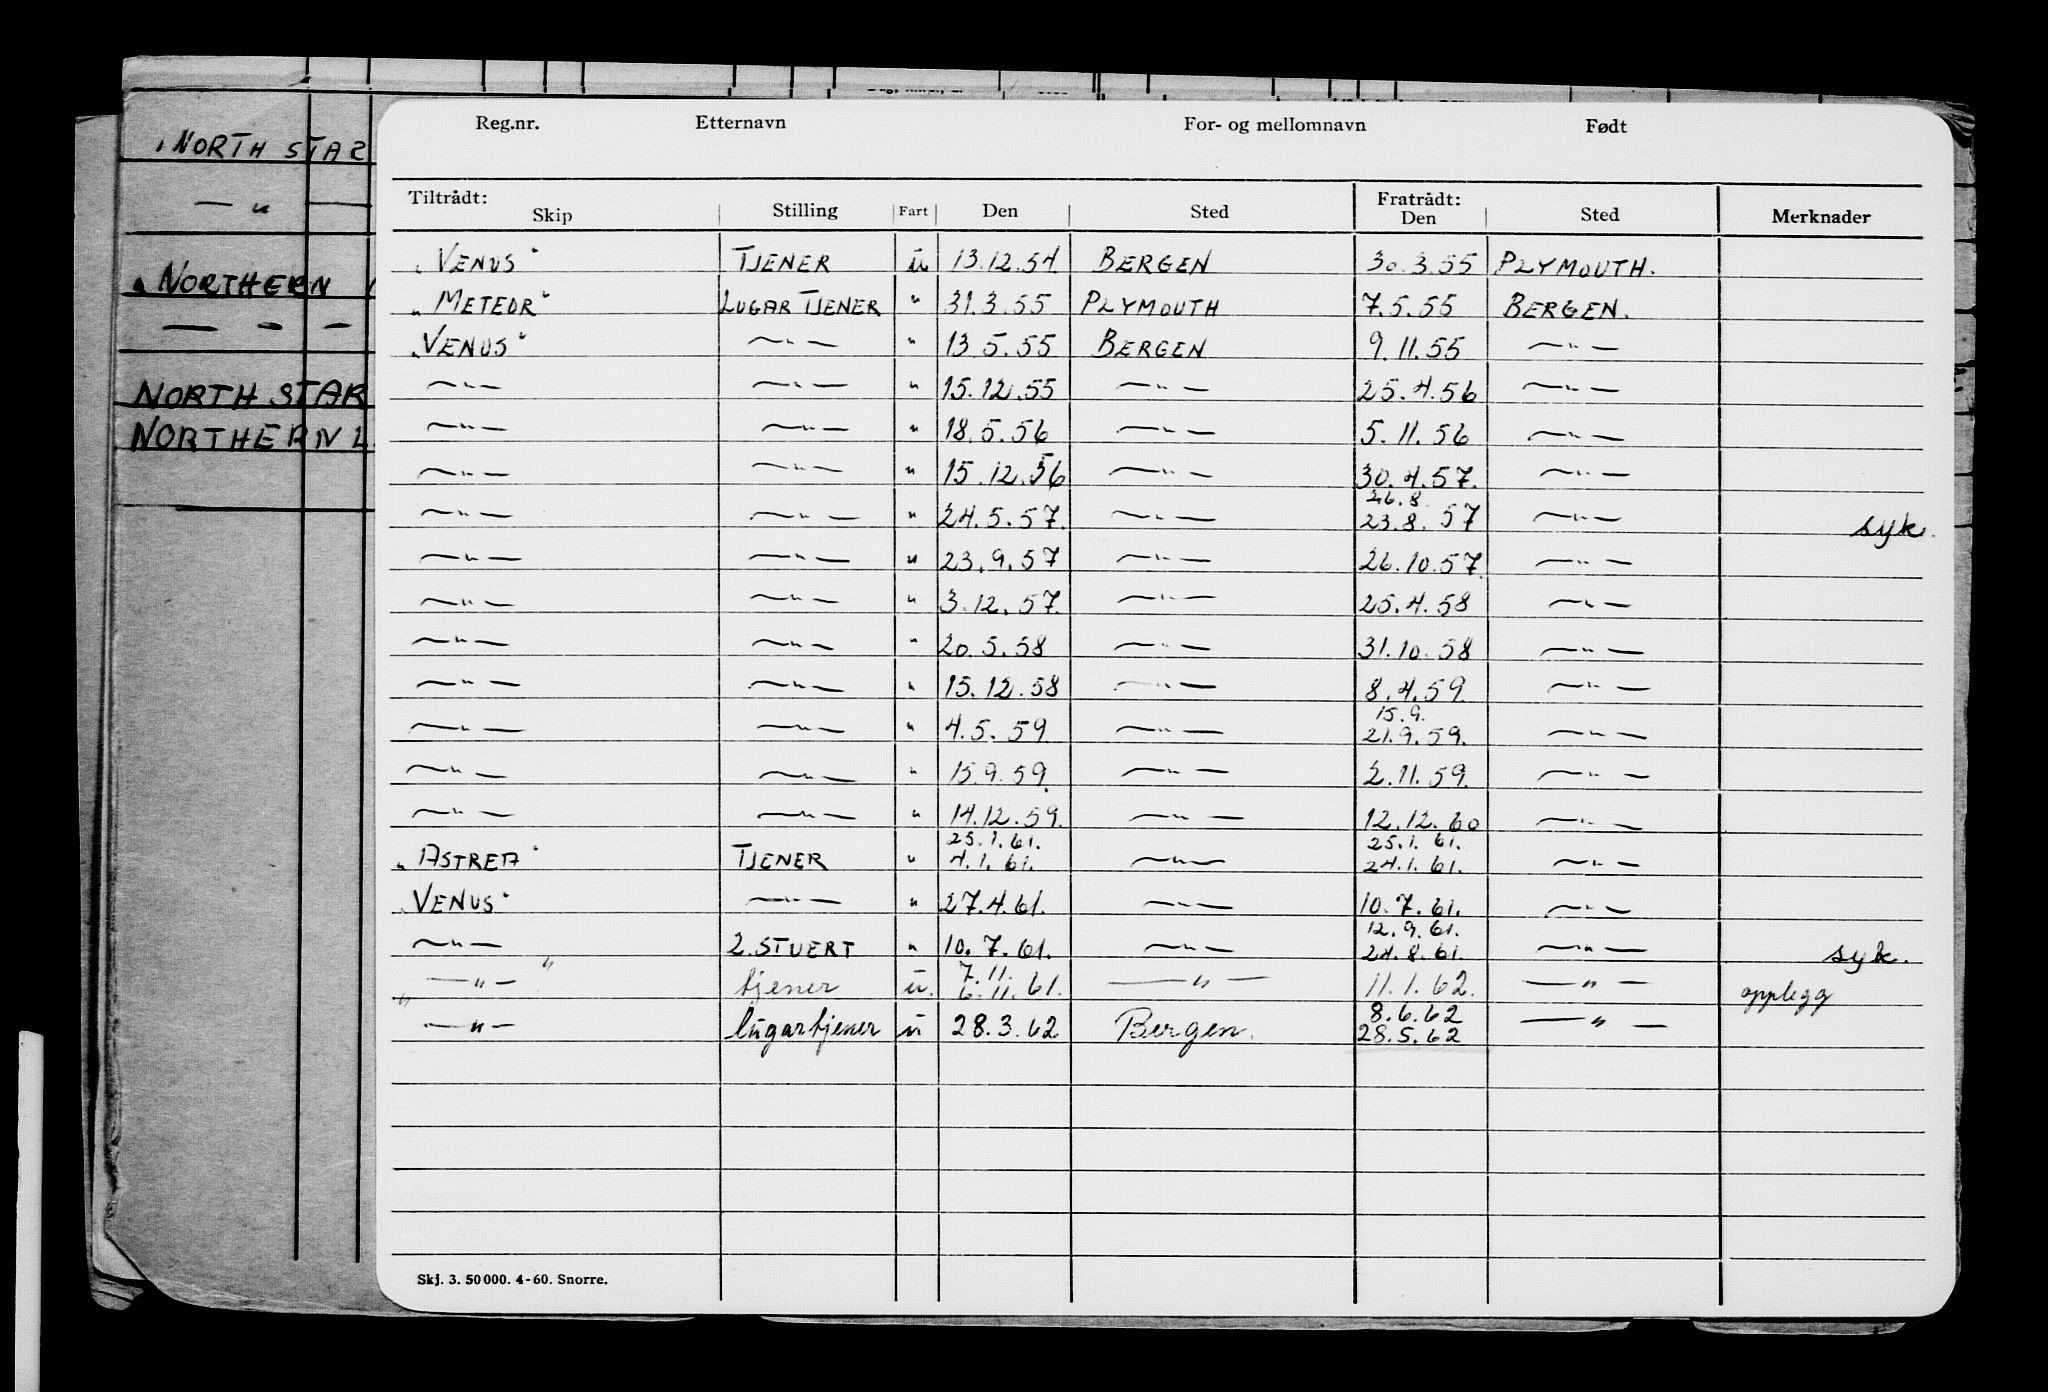 "NORTH STAR
— " —
"NORTHERN
— - —
NORTH STAR
NORTHERN L
Reg.nr. Etternavn For- og mellomnavn Født
Tiltrådt: Fratrådt:
Skip Stilling Fart Den Sted Den Sted Merknader
"VENUS" TJENER u 13.12.54 BERGEN 30.3.55 PLYMOUTH.
"METEOR" LUGARTJENER " 31.3.55 PLYMOUTH 7.5.55 BERGEN.
"VENUS" — " — " 13.5.55 BERGEN 9.11.55 — " —
— " — — " — " 15.12.55 — " — 25.4.56 — " —
— " — — " — " 18.5.56 — " — 5.11.56 — " —
— " — — " — " 15.12.56 — " — 30.4.57. — " —
26.8
— " — — " — " 24.5.57. — " — 23.8.57 — " — syk.
— " — — " — " 23.9.57 — " — 26.10.57. — " —
— " — — " — " 3.12.57. — " — 25.4.58 — " —
— " — — " — " 20.5.58 — " — 31.10.58 — " —
— " — — " — " 15.12.58 — " — 8.4.59. — " —
15.9.
— " — — " — " 4.5.59 — " — 21.9.59. — " —
— " — — " — " 15.9.59. — " — 2.11.59. — " —
— " — — " — " 14.12.59. — " — 12.12.60 — " —
25.1.61. 25.1.61.
"ASTREA" TJENER " 4.1.61. — " — 24.1.61. — " —
"VENUS" — " — " 27.4.61. — " — 10.7.61. — " —
12.9.61.
— " — 2.STUERT " 10.7.61. — " — 24.8.61. — " — syk.
7.11.
" — " — " tjener u. 6.11.61. — " — 11.1.62. — " — opplegg
8.6.62
— " — lugartjener u 28.3.62 Bergen. 28.5.62 — " —
Skj. 3. 50 000. 4-60. Snorre.